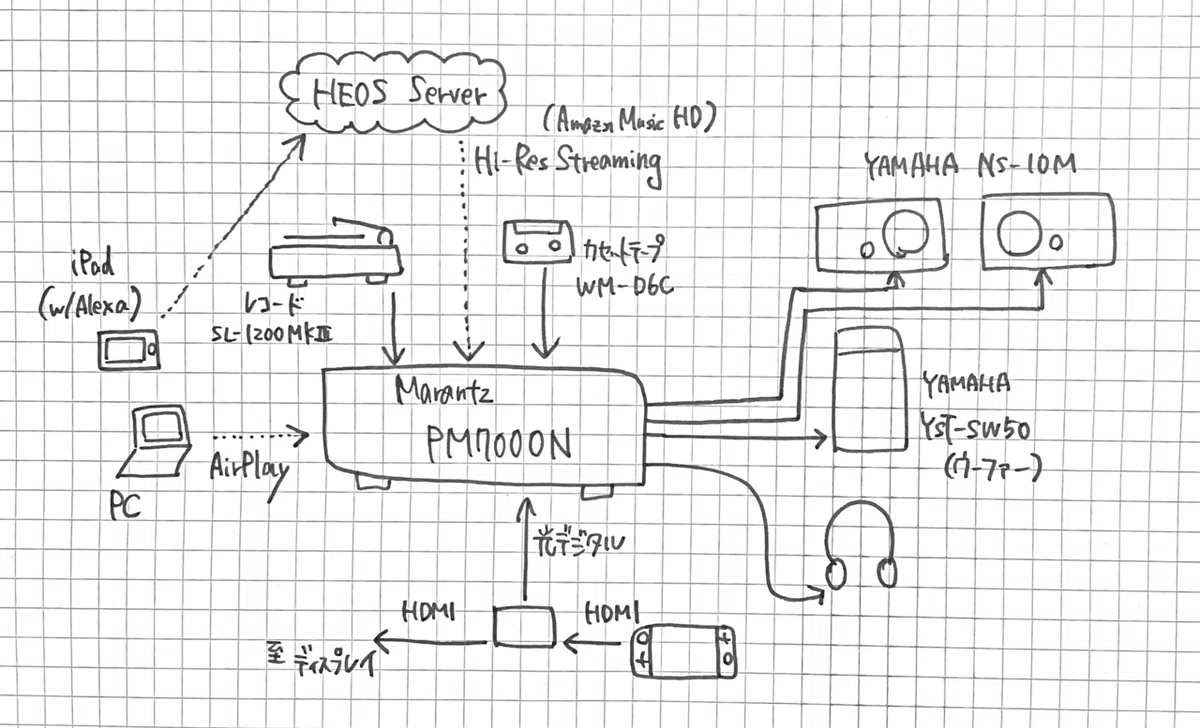 HEOS Server
(Amazon Music HD)
Hi-Res Streaming
YAMAHA NS-10M
iPad
(w/Alexa)
レコード
SL-1200MKⅢ
カセットテープ
WM-D6C
Marantz
PM7000N
YAMAHA
YST-SW50
(ウーファー)
AirPlay
PC
光デジタル
HDMI
HDMI
至 ディスプレイ